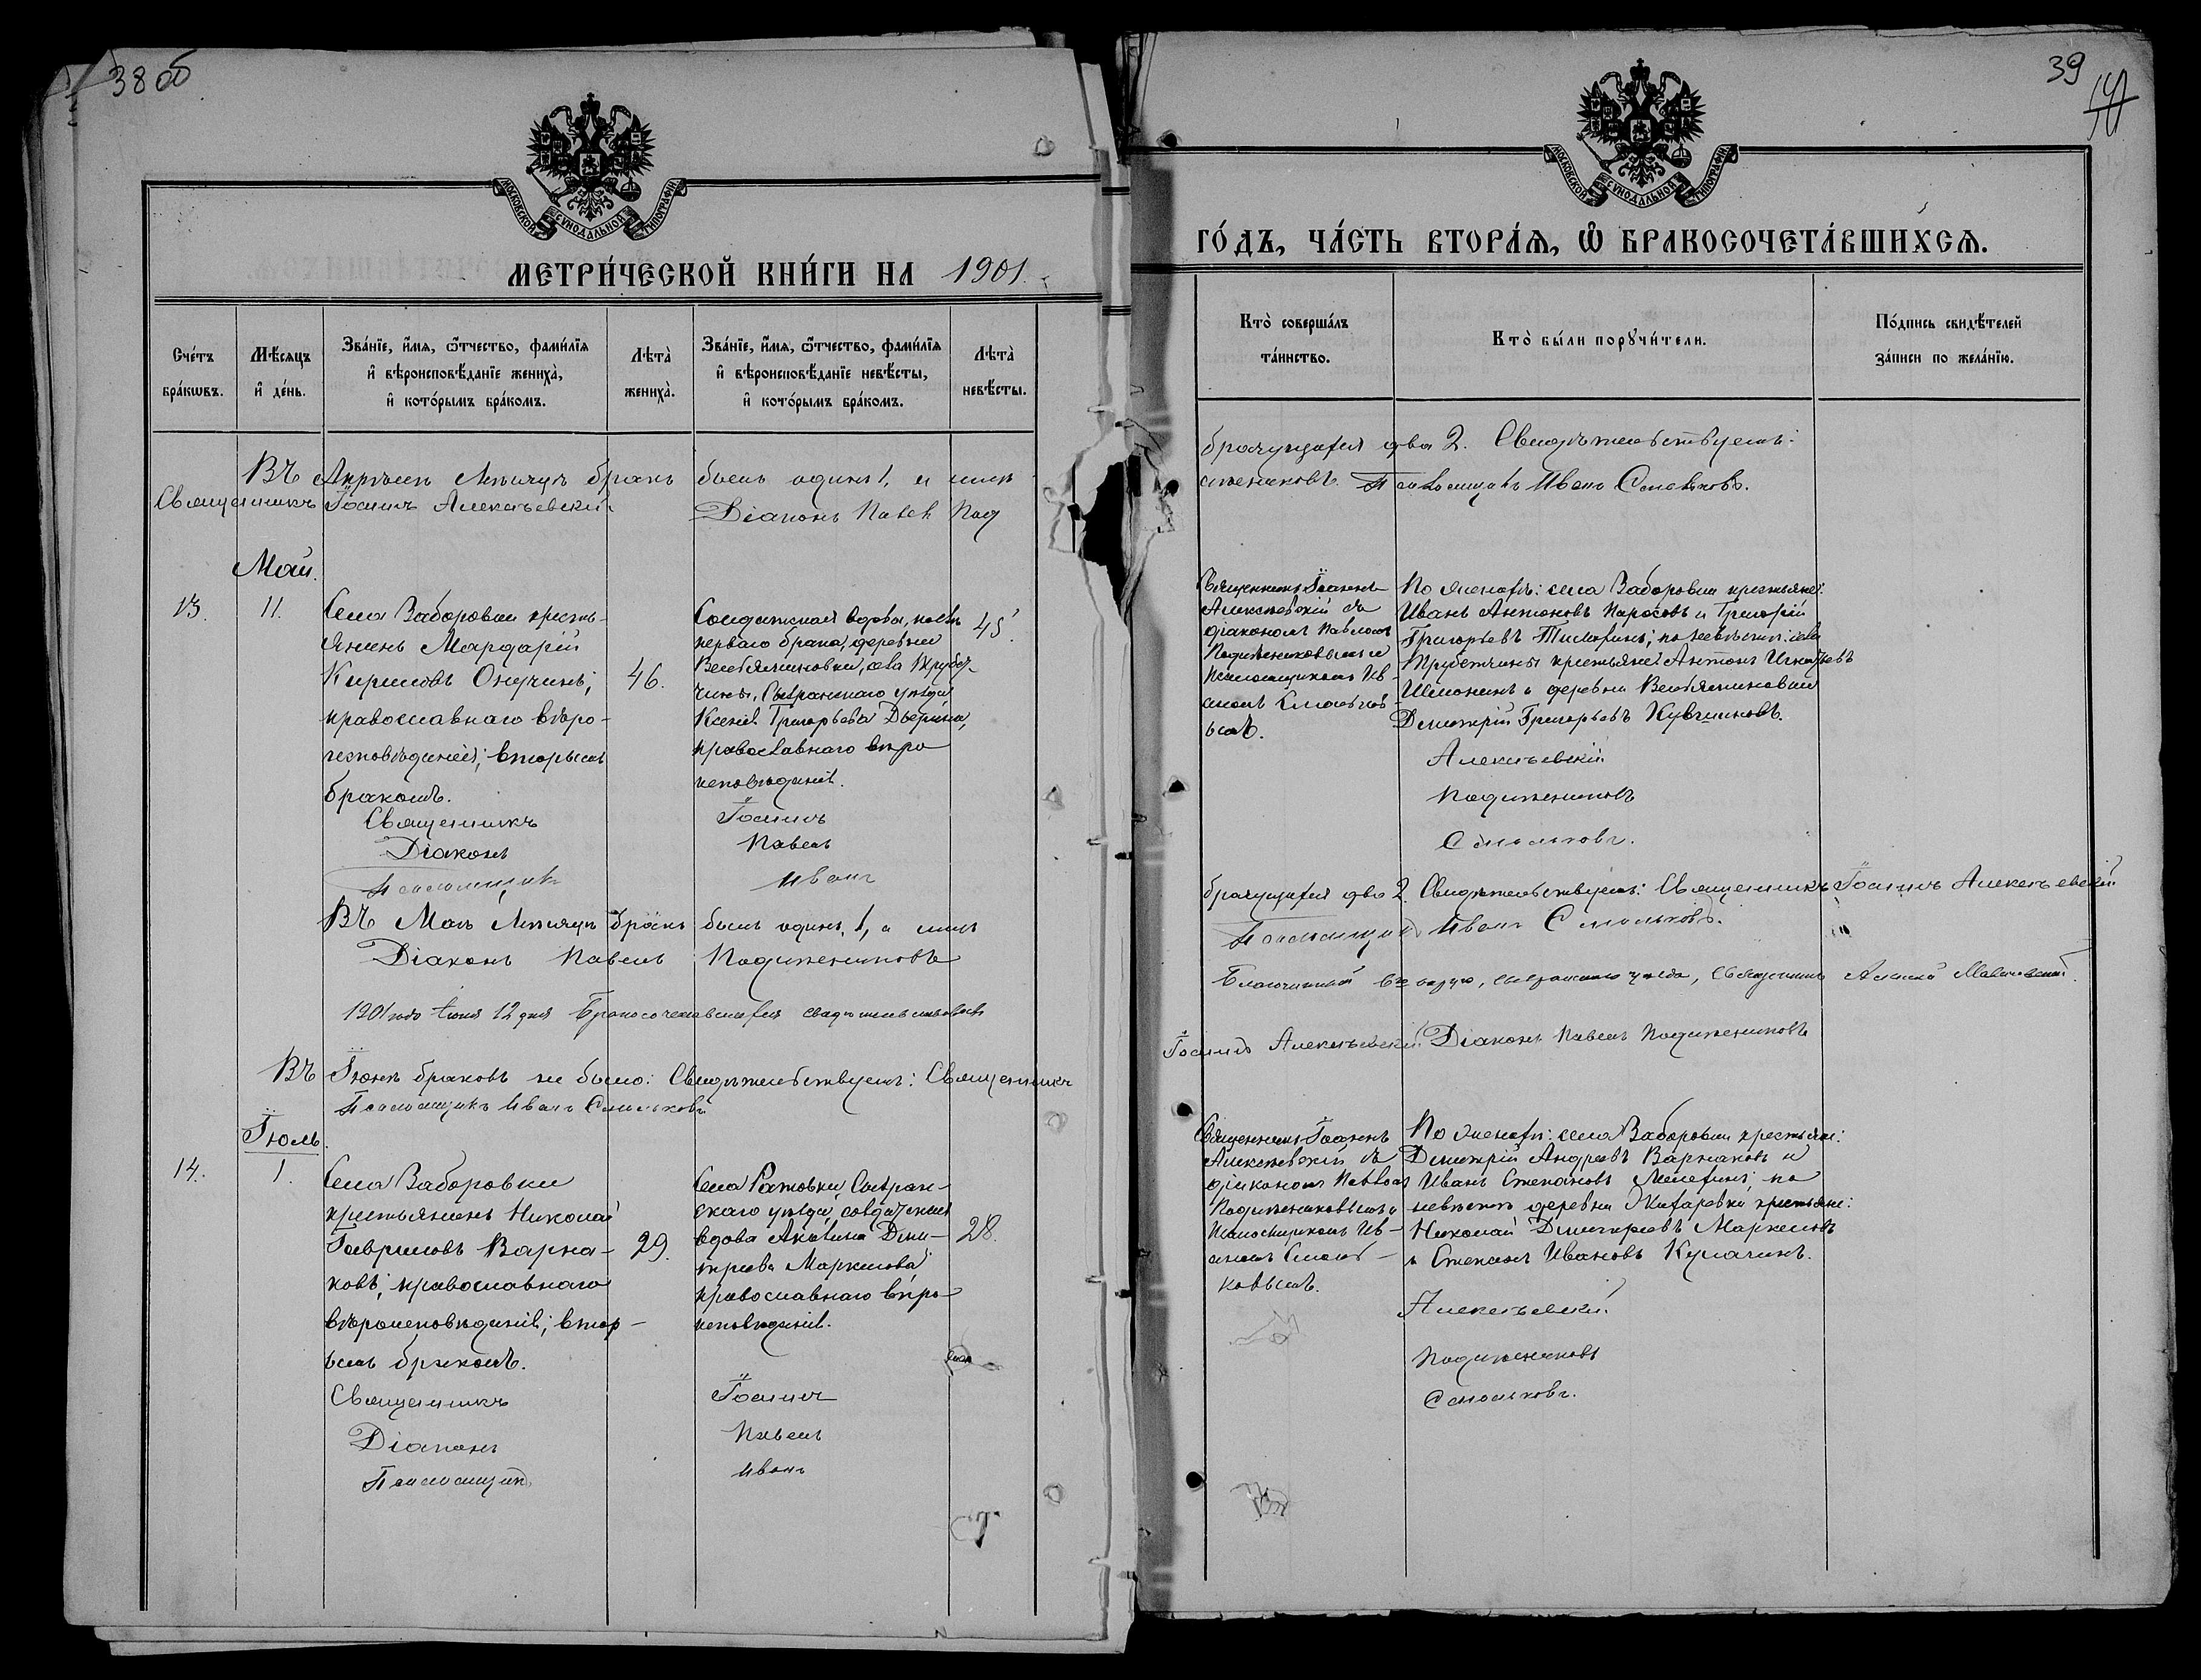 38 об
МОСКОВСКОЙ СѴНОДАЛЬНОЙ ТИПОГРАФІИ.
МЕТРИ́ЧЕСКОЙ КНИ́ГИ НА 1901.
Сче́тъ бра́кѡвъ.
Мѣ́сяцъ и҆ де́нь.
Зва́нїе, и҆́мя, ѿтчество, фами́лїя
и҆ вѣроисповѣ́данїе жениха̀,
и҆ кото́рымъ бра́комъ.
Лѣта̀ жениха̀.
Зва́нїе, и҆́мя, ѿтчество, фами́лїя
и҆ вѣроисповѣ́данїе невѣ́сты,
и҆ кото́рымъ бра́комъ.
Лѣта̀ невѣ́сты.
Въ Апрѣлѣ мѣсяцѣ бракъ былъ одинъ 1, и
Священникъ Іоаннъ Алексѣевскій.
Діаконъ Павелъ Под
Май.
13.
11.
Села Заборовки кресть-
янинъ Мардарій
Кириловъ Онучинъ;
православнаго вѣро-
исповѣданія; вторымъ
бракомъ.
46.
Солдатская вдова, послѣ
перваго брака, деревни
Веньяминовки, села Трубет-
чины, Сызранскаго уѣзда
Ксенія Григорьева
православнаго вѣро
исповѣданія.
45.
Священникъ Іоаннъ
Діаконъ Павелъ
Псаломщикъ Иванъ
Въ Маѣ мѣсяцѣ бракъ былъ одинъ, 1, а
Діаконъ Павелъ Поджениковъ
1901 года Іюня 12 дня Бракосочетавшихся свидѣтельствовалъ
Въ Іюнѣ браковъ не было: Свидѣтельствуемъ: Священникъ
Псаломщикъ Иванъ Смольковъ
Іюль.
14.
1.
Села Заборовки
крестьянинъ Николай
Гавриловъ Варна-
ковъ; православнаго
вѣроисповѣданія; втор-
ымъ бракомъ.
29.
Села Ратовки, Сызран-
скаго уѣзда, солдатская
вдова Акилина Дми-
тріева Маркелова
православнаго вѣро-
исповѣданія.
28.
Священникъ Іоаннъ
Діаконъ Павелъ
Псаломщикъ Иванъ
39
МОСКОВСКОЙ СѴНОДАЛЬНОЙ ТИПОГРАФІИ.
ГО́ДЪ, ЧА́СТЬ ВТОРА́Я, Ѿ БРАКОСОЧЕТА́ВШИХСЯ.
Кто̀ соверша́лъ
та́инство.
Кто̀ бы́ли порꙋчи́тели.
По́дпись свидѣ́телей
за́писи по жела́нїю.
брачущихся два 2. Свидѣтельствуемъ:
жениковъ. Псаломщикъ Иванъ Смольковъ.
Священникъ Іоаннъ
Алексѣевскій съ
діакономъ Павломъ
Подженниковымъ и
Псаломщикомъ Ив-
аномъ Смольков-
ымъ.
По женихѣ: села Заборовки крестьяне:
Иванъ Антоновъ Паросовъ и Григорій
Григорьевъ Тимофинъ; по невѣстѣ: села
Трубетчины крестьяне: Антонъ Игнатьевъ
Шмонинъ и деревни Веньяминовки
Дмитрій Григорьевъ Кувшиновъ.
Алексѣевскій
Поджениковъ
Смольковъ.
брачущихся два 2. Свидѣтельствуемъ: Священникъ Іоаннъ Алексѣевскій
Псаломщикъ Иванъ Смольковъ.
Благочинный 6го округа, Сызранскаго уѣзда, Священникъ Алексій
Іоаннъ Алексѣевскій. Діаконъ Павелъ Поджениковъ
Священникъ Іоаннъ
Алексѣевскій съ
діакономъ Павломъ
Подженниковымъ и
Псаломщикомъ Ив-
аномъ Смоль-
ковымъ.
По женихѣ: села Заборовки крестьяне:
Дмитрій Андреевъ Варнаковъ и
Иванъ Степановъ Мелехинъ; по
невѣстѣ деревни Жихаревки крестьяне:
Николай Дмитріевъ Маркеловъ
и Степанъ Ивановъ Кулагинъ.
Алексѣевскій.
Поджениковъ
Смольковъ.